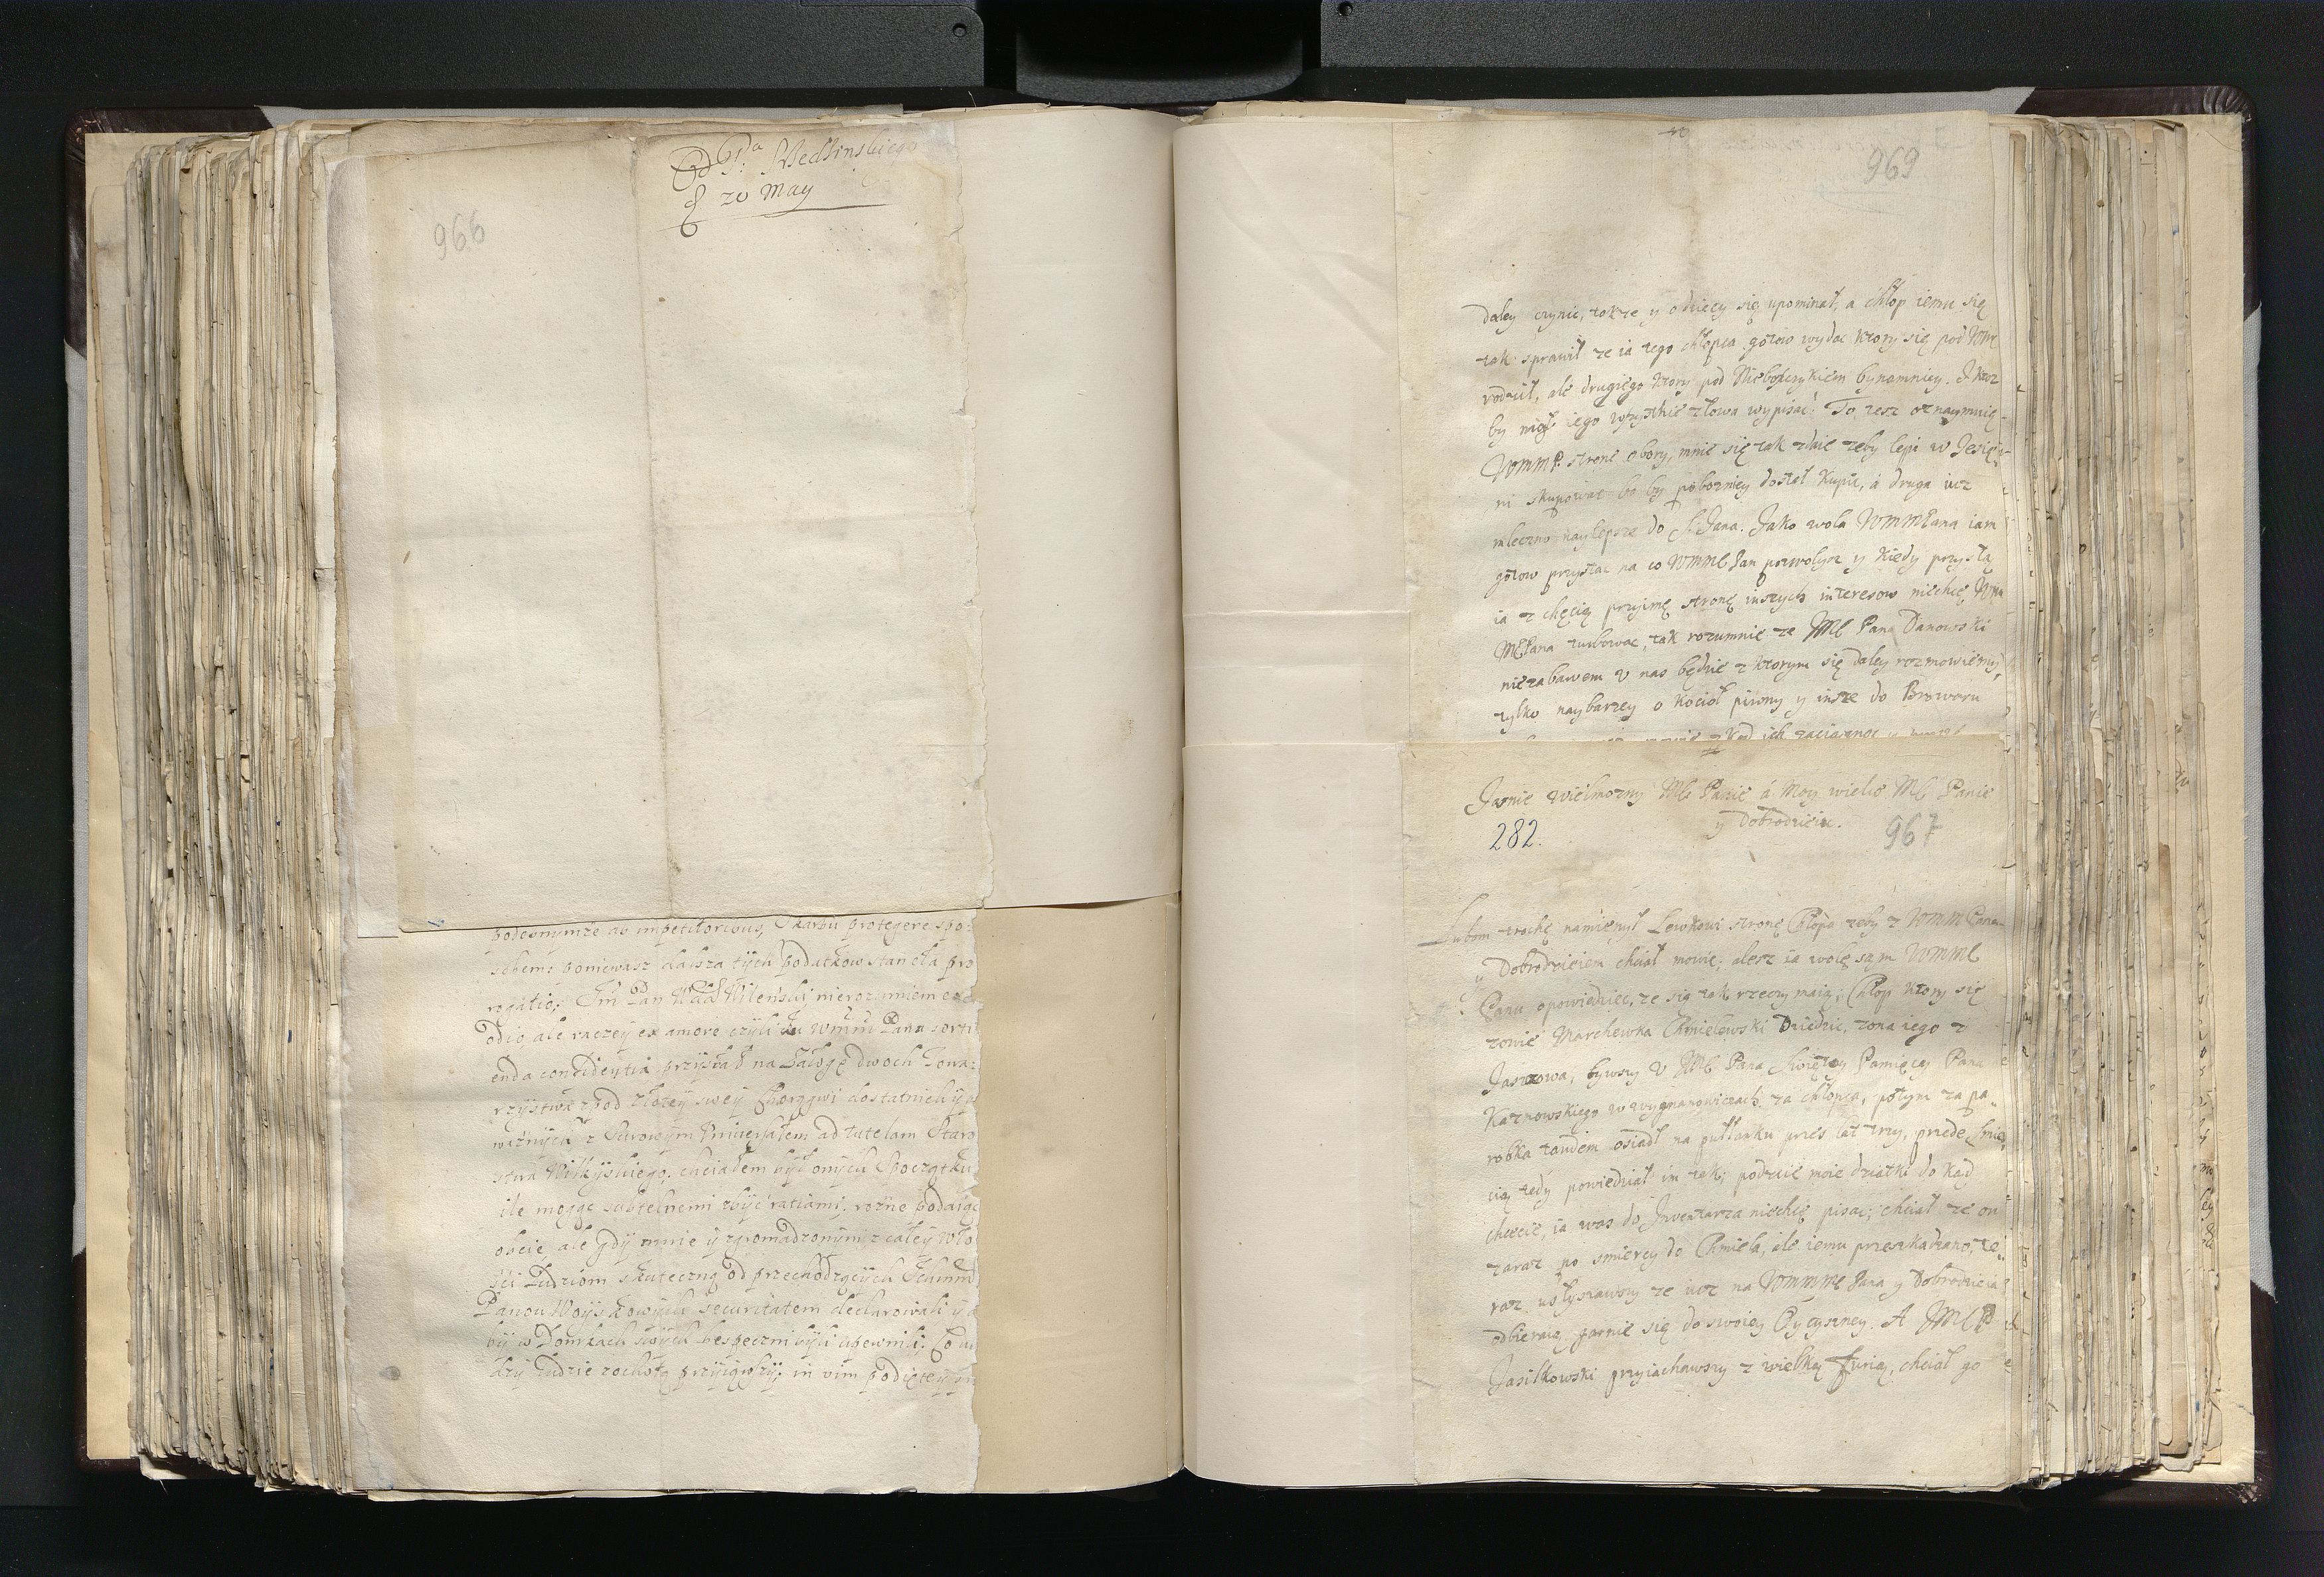 Od Pa Medlinskiego
20 May
966
podobnymże ab impetitoribus, Skarbu protegere spo-
sobem; poniewasz dalsza tych podatkow stanęła pro
rogatio; Jm Pan Wda Wilenskj nierozumiem ex
odio, ale raczey ex amore czyli ku Wmm Panu
enda confidentia przysłał na Załogę dwoch Towa-
rzystwa zpod złotey swey Chorągwi dostatnich y
ważnych z Surowym Uniwersałem ad tutelam Staro
stwa chciałem być onych Spoczątku
ile mogąc subtelnemi zbyć ratiami, rożne podaiąc
obcie, ale gdy mnie y zgromadzonym z całey Wło
ści Ludziom skuteczną od przechodzących Ichmm
Panow Woyskowych securitatem declarowali y a
by w Domkach swych bespeczni byli upewnili; Co w
dzy Ludzie zochotą przyiąwszy, in vim podiętey
969
daley czynic, tokże y odzięcy się upominał, a chłop iemu się
tak sprawił ze ia tego chłopca gotow wydac ktory się pod Wm
rodził, ale drugiego ktory pod Nieboszczykiem bynamniey. I ktoz
by mogł iego wszystkie słowa wypisać. To tesz oznaymuię
WmmP. stronę obory, mnie się tak zdaie zeby lepi w Jesię-
ni skupowac bo by pobozniey dostał kupić, á druga iuz
mleczno naylepsze do S. Jana. Jako wola WmmPana iam
gotow przystac na co WmmE Pan pozwolysz y kiedy przyslą
ia z chęcią przyimę stronę inszych interesow niechcę Wm
MEPana turbowac, tak rozumnie ze JME Pan Danowski
niezabawem v nas będzie z ktorym się daley rozmowiemy,
tylko naybarzey o kocioł piwny y insze do Browaru
Jasnie Wielmozny ME Panie á Moy wielce ME Panie
y Dobrodzieiu.
282.
967
Lubom trochę namięnył Lewkowi stronę Chłopa zeby z WmmPanem
y Dobrodzieiem chciał mowic; alesz ia wolę sąm WmmE
Panu opowiedziec, ze się tak rzeczy maią; Chłop ktory się
zowie Marchewka Chmielowski Dziedzic, zona iego z
Jaszzowa, bywszy v JME Pana Swiętey Pamięcy Pana
Kaznowskiego w wygnanowiczach za chłopca, potym za pa-
robka tandem osiadł na pułłanku przes lat trzy, przede smier
cią tedy powiedział im tak; podzcie moie dziatki do kąd
chcecie, ia was do Inwentarza niechcę pisac; chciał ze on
zaraz po smiercy do Chmiela, ale iemu przeszkadzano, te-
raz usłyszawszy ze iuz na WmmME Pana y Dobrodzieia
odbieraią garnie się do swoiey Oyczyzney. A JMEP
Jasilkowski przyiachawszy z wielką Furią, chciał go